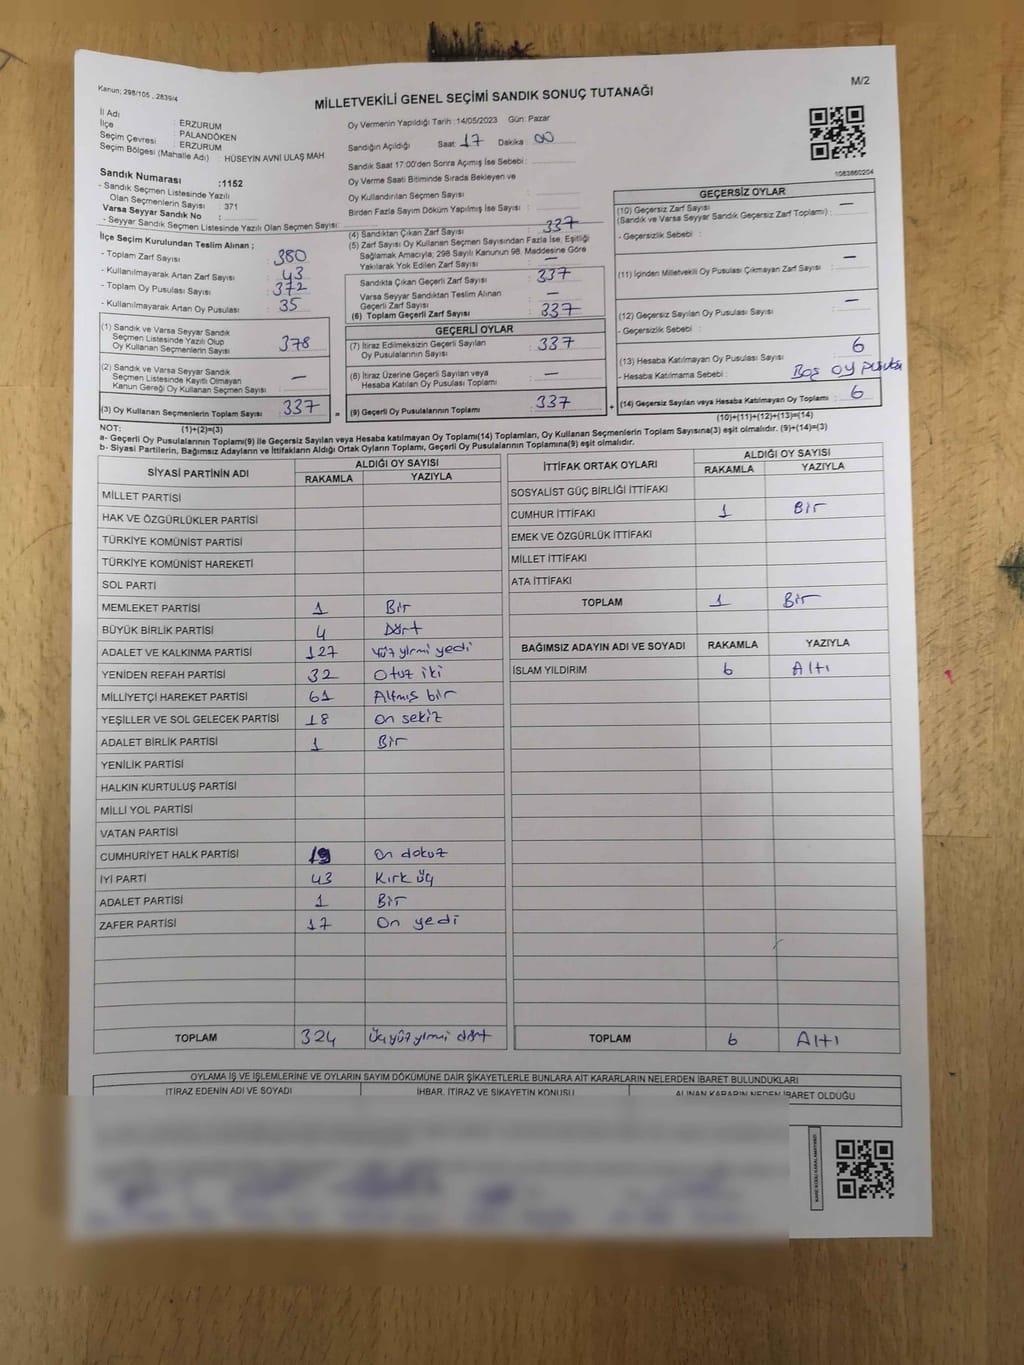 Kanun; 298/105 , 2839/4
MİLLETVEKİLİ GENEL SEÇİMİ SANDIK SONUÇ TUTANAĞI
M/2
İl Adı : ERZURUM
İlçe : PALANDÖKEN
Seçim Çevresi : ERZURUM
Seçim Bölgesi (Mahalle Adı) : HÜSEYİN AVNİ ULAŞ MAH
Sandık Numarası :1152
- Sandık Seçmen Listesinde Yazılı
Olan Seçmenlerin Sayısı : 371
Varsa Seyyar Sandık No :
- Seyyar Sandık Seçmen Listesinde Yazılı Olan Seçmen Sayısı:
İlçe Seçim Kurulundan Teslim Alınan ;
- Toplam Zarf Sayısı : 380
- Kullanılmayarak Artan Zarf Sayısı : 43
- Toplam Oy Pusulası Sayısı : 372
- Kullanılmayarak Artan Oy Pusulası : 35
(1) Sandık ve Varsa Seyyar Sandık
Seçmen Listesinde Yazılı Olup
Oy Kullanan Seçmenlerin Sayısı : 378
(2) Sandık ve Varsa Seyyar Sandık
Seçmen Listesinde Kayıtlı Olmayan
Kanun Gereği Oy Kullanan Seçmen Sayısı : —
(3) Oy Kullanan Seçmenlerin Toplam Sayısı : 337
(1)+(2)=(3)
Oy Vermenin Yapıldığı Tarih :14/05/2023 Gün: Pazar
Sandığın Açıldığı Saat: 17 Dakika : 00
Sandık Saat 17:00'den Sonra Açımış İse Sebebi :
Oy Verme Saati Bitiminde Sırada Bekleyen ve
Oy Kullandırılan Seçmen Sayısı :
Birden Fazla Sayım Döküm Yapılmış İse Sayısı :
(4) Sandıktan Çıkan Zarf Sayısı : 337
(5) Zarf Sayısı Oy Kullanan Seçmen Sayısından Fazla İse, Eşitliği
Sağlamak Amacıyla; 298 Sayılı Kanunun 98. Maddesine Göre
Yakılarak Yok Edilen Zarf Sayısı : —
Sandıkta Çıkan Geçerli Zarf Sayısı : 337
Varsa Seyyar Sandıktan Teslim Alınan
Geçerli Zarf Sayısı : —
(6) Toplam Geçerli Zarf Sayısı : 337
GEÇERLİ OYLAR
(7) İtiraz Edilmeksizin Geçerli Sayılan
Oy Pusulalarının Sayısı : 337
(8) İtiraz Üzerine Geçerli Sayılan veya
Hesaba Katılan Oy Pusulası Toplamı : —
= (9) Geçerli Oy Pusulalarının Toplamı : 337 +
1083860204
GEÇERSİZ OYLAR
(10) Geçersiz Zarf Sayısı
(Sandık ve Varsa Seyyar Sandık Geçersiz Zarf Toplamı) : —
- Geçersizlik Sebebi :
(11) İçinden Milletvekili Oy Pusulası Çıkmayan Zarf Sayısı : —
(12) Geçersiz Sayılan Oy Pusulası Sayısı : —
- Geçersizlik Sebebi :
(13) Hesaba Katılmayan Oy Pusulası Sayısı : 6
- Hesaba Katılmama Sebebi : Boş oy pusulası
(14) Geçersiz Sayılan veya Hesaba Katılmayan Oy Toplamı : 6
(10)+(11)+(12)+(13)=(14)
NOT:
a- Geçerli Oy Pusulalarının Toplamı(9) ile Geçersiz Sayılan veya Hesaba katılmayan Oy Toplamı(14) Toplamları, Oy Kullanan Seçmenlerin Toplam Sayısına(3) eşit olmalıdır. (9)+(14)=(3)
b- Siyasi Partilerin, Bağımsız Adayların ve İttifakların Aldığı Ortak Oyların Toplamı, Geçerli Oy Pusulalarının Toplamına(9) eşit olmalıdır.
SİYASİ PARTİNİN ADI ALDIĞI OY SAYISI
RAKAMLA YAZIYLA
MİLLET PARTİSİ
HAK VE ÖZGÜRLÜKLER PARTİSİ
TÜRKİYE KOMÜNİST PARTİSİ
TÜRKİYE KOMÜNİST HAREKETİ
SOL PARTİ
MEMLEKET PARTİSİ 1 Bir
BÜYÜK BİRLİK PARTİSİ 4 Dört
ADALET VE KALKINMA PARTİSİ 127 Yüz yirmi yedi
YENİDEN REFAH PARTİSİ 32 Otuz iki
MİLLİYETÇİ HAREKET PARTİSİ 61 Altmış bir
YEŞİLLER VE SOL GELECEK PARTİSİ 18 On sekiz
ADALET BİRLİK PARTİSİ 1 Bir
YENİLİK PARTİSİ
HALKIN KURTULUŞ PARTİSİ
MİLLİ YOL PARTİSİ
VATAN PARTİSİ
CUMHURİYET HALK PARTİSİ 19 On dokuz
İYİ PARTİ 43 Kırk üç
ADALET PARTİSİ 1 Bir
ZAFER PARTİSİ 17 On yedi
TOPLAM 324 Üçyüz yirmi dört
İTTİFAK ORTAK OYLARI ALDIĞI OY SAYISI
RAKAMLA YAZIYLA
SOSYALİST GÜÇ BİRLİĞİ İTTİFAKI
CUMHUR İTTİFAKI 1 Bir
EMEK VE ÖZGÜRLÜK İTTİFAKI
MİLLET İTTİFAKI
ATA İTTİFAKI
TOPLAM 1 Bir
BAĞIMSIZ ADAYIN ADI VE SOYADI RAKAMLA YAZIYLA
İSLAM YILDIRIM 6 Altı
TOPLAM 6 Altı
OYLAMA İŞ VE İŞLEMLERİNE VE OYLARIN SAYIM DÖKÜMÜNE DAİR ŞİKAYETLERLE BUNLARA AİT KARARLARIN NELERDEN İBARET BULUNDUKLARI
İTİRAZ EDENİN ADI VE SOYADI İHBAR, İTİRAZ VE ŞİKAYETİN KONUSU ALINAN KARARIN NEDEN İBARET OLDUĞU